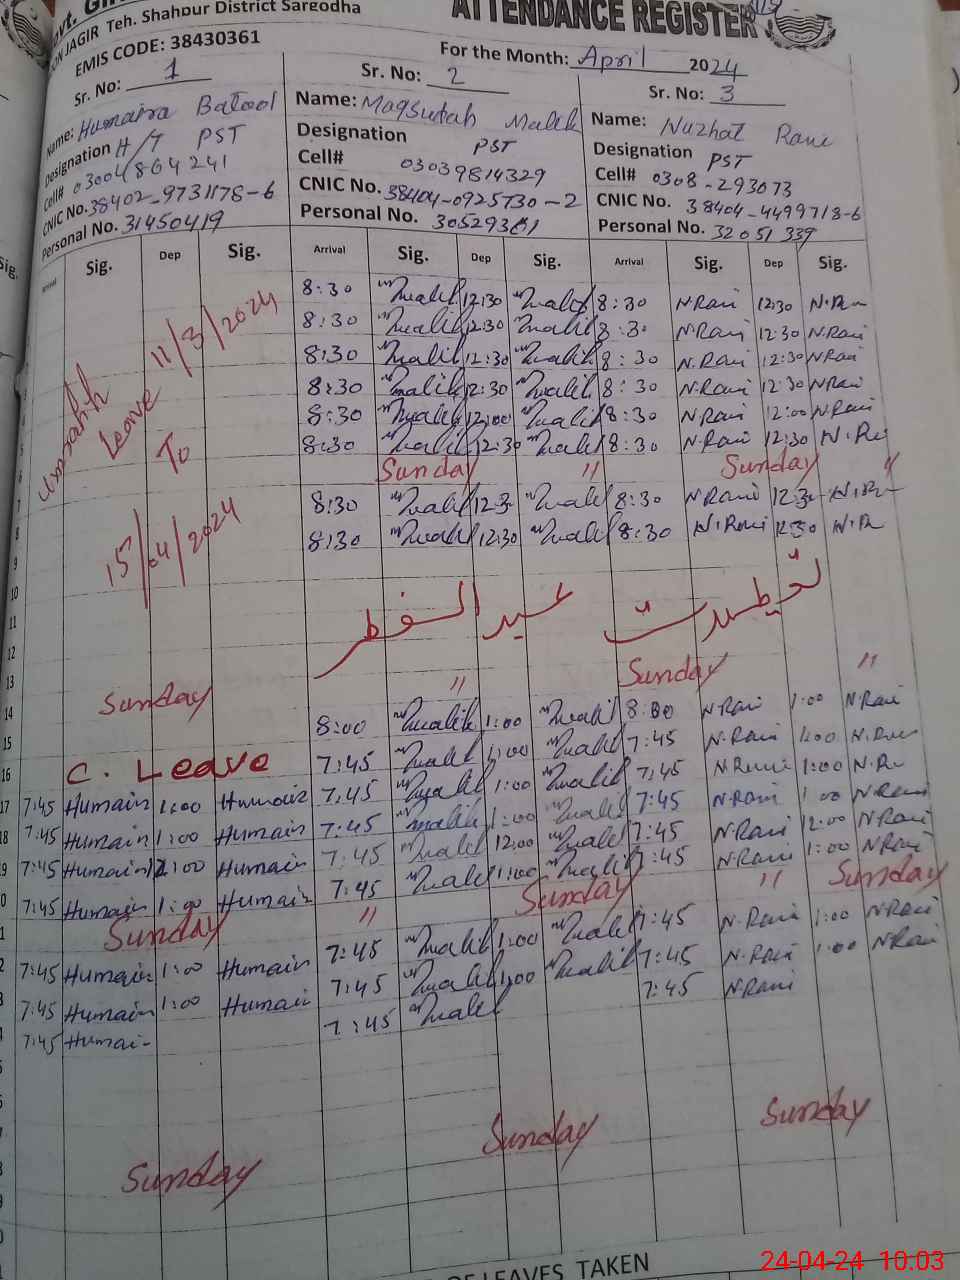 ATTENDANCE REGISTER
JAGIR Teh. Shahpur District Sargodha
EMIS CODE: 38430361
For the Month: April 2024
Sr. No: 1
Sr. No: 2
Sr. No: 3
Name: Humaira Batool
Name: Maqsudah Malik
Name: Nuzhat Rani
Designation H/T PST
Designation PST
Designation PST
Cell# 03004864241
Cell# 03039814329
Cell# 0308-293073
CNIC No. 38402-9731178-6
CNIC No. 38404-0925730-2
CNIC No. 38404-4499718-6
Personal No. 31450419
Personal No. 30529361
Personal No. 32051339
Sig. Dep Sig. Arrival Sig. Dep Sig. Arrival Sig. Dep Sig.
8:30 Malik 12:30 Malik 8:30 N.Rani 12:30 N.Rani
8:30 Malik 12:30 Malik 8:30 N.Rani 12:30 N.Rani
8:30 Malik 12:30 Malik 8:30 N.Rani 12:30 N.Rani
8:30 Malik 12:30 Malik 8:30 N.Rani 12:30 N.Rani
8:30 Malik 12:00 Malik 8:30 N.Rani 12:00 N.Rani
8:30 Malik 12:30 Malik 8:30 N.Rani 12:30 N.Rani
Leave 11/3/2024
To
15/04/2024
Sunday " Sunday "
8:30 Malik 12:30 Malik 8:30 N.Rani 12:30
8:30 Malik 12:30 Malik 8:30 N.Rani 12:30
تعطیلات عید الفطر
Sunday " Sunday "
8:00 Malik 1:00 Malik 8:00 N.Rani 1:00 N.Rani
C. Leave 7:45 Malik 1:00 Malik 7:45 N.Rani 1:00
17 7:45 Humaira 1:00 Humaira 7:45 Malik 1:00 Malik 7:45 N.Rani 1:00
18 7:45 Humaira 1:00 Humaira 7:45 Malik 1:00 Malik 7:45 N.Rani 1:00 N.Rani
7:45 Humaira 12:00 Humaira 7:45 Malik 12:00 Malik 7:45 N.Rani 12:00 N.Rani
7:45 Humaira 1:00 Humaira 7:45 Malik 1:00 Malik 7:45 N.Rani 1:00 N.Rani
Sunday " Sunday " Sunday
7:45 Humaira 1:00 Humaira 7:45 Malik 1:00 Malik 7:45 N.Rani 1:00 N.Rani
7:45 Humaira 1:00 Humaira 7:45 Malik 1:00 Malik 7:45 N.Rani 1:00 N.Rani
7:45 Humai 7:45 Malik 7:45 N.Rani
Sunday Sunday Sunday
OF LEAVES TAKEN
24-04-24 10:03